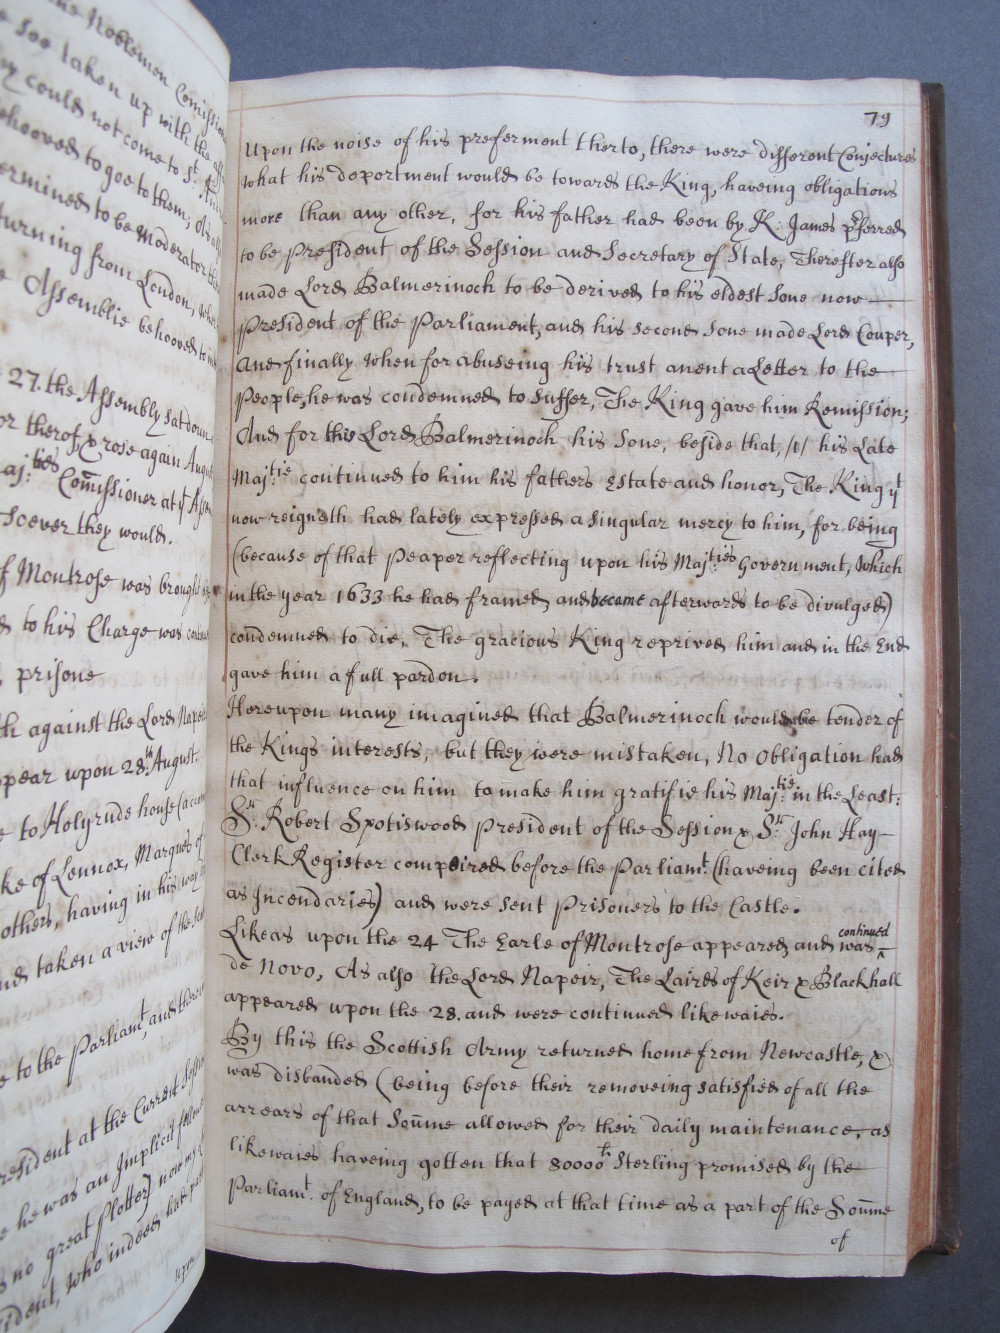 the Noblemen Comission
soo taken up with the
could not come to St. And
ehooved to goe to them;
ermined to be Moderator
turning from London, when
Assemblie behooved to
27. the Assembly sat doun
or therof, & rose again August
aj:ties Comissioner at yt Assem
soever they would.
f Montrose was brought
d to his Charge was continu
prisone
th against the Lord Napeir
pear upon 28th August.
e to Holyrude house (accom
ke of Lennox, Marques of
others, having in his way
nd taken a view of the
e to the Parliamt, and ther
resident at the Current Session
e he was an Implicit follow
s no great Plotter) now my
sident, who indeed had
upon
79
Upon the noise of his preferment therto, there were different Conjectures
what his deportment would be towards the King, haveing obligations
more than any other, for his father had been by K: James pferred
to be President of the Session and Secretary of State, Therefter also
made Lord Balmerinoch to be derived to his eldest Sone now
President of the Parliament, and his second Sone made Lord Couper,
And finally when for abuseing his trust anent a Letter to the
People, he was condemned to suffer, The King gave him Remission;
And for this Lord Balmerinoch his Sone, beside that, /1/ his Late
Maj:tie continued to him his fathers Estate and honor, The King yt
now reigneth had lately expressed a singular mercy to him, for being
(because of that Peaper reflecting upon his Maj:ties Government, which
in the year 1633 he had framed and became afterwards to be divulged)
condemned to die, The gracious King reprived him and in the End
gave him a full pardon.
Hereupon many imagined that Balmerinoch would be tender of
the Kings interests, but they were mistaken, No obligation had
that influence on him to make him gratifie his Maj:tie in the Least:
Sr. Robert Spotiswood President of the Session & Sr. John Hay
Clerk Register compeired before the Parliamt. (haveing been cited
as Incendaries) and were sent Prisoners to the Castle.
Likeas upon the 24 The Earle of Montrose appeared, and was continued
de Novo, As also the Lord Napeir, The Lairds of Keir & Blackhall
appeared upon the 28. and were continued likewaies.
By this the Scottish Army returned home from Newcastle, &
was disbanded (being before their removeing satisfied of all the
arrears of that Soume allowed for their daily maintenance, as
likewaies haveing gotten that 80000 ₶ Sterling promised by the
Parliamt. of England, to be payed at that time as a part of the Soume
of